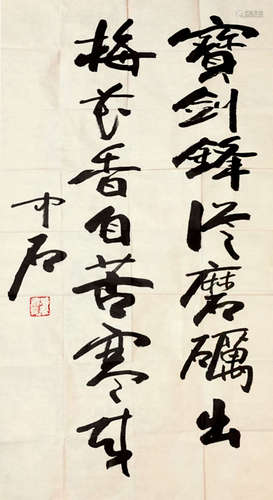 寶劍鋒從磨礪出
梅花香自苦寒來
中石